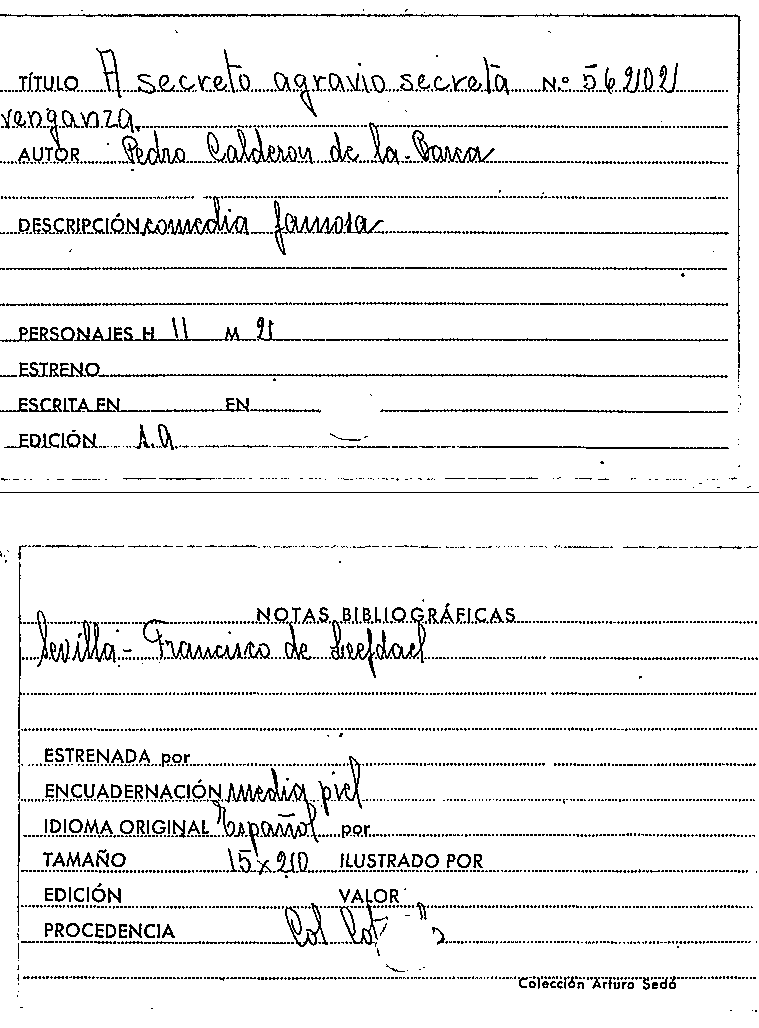 TÍTULO A secreto agravio secreta N.º 56202
venganza.
AUTOR Pedro Calderon de la Barca
DESCRIPCIÓN comedia famosa
PERSONAJES H 11 M 2
ESTRENO
ESCRITA EN EN
EDICIÓN S.A
NOTAS BIBLIOGRÁFICAS
Sevilla - Francisco de Leefdael
ESTRENADA por
ENCUADERNACIÓN media piel
IDIOMA ORIGINAL Español por
TAMAÑO 15x20 ILUSTRADO POR
EDICIÓN VALOR
PROCEDENCIA Col
Colección Arturo Sedó